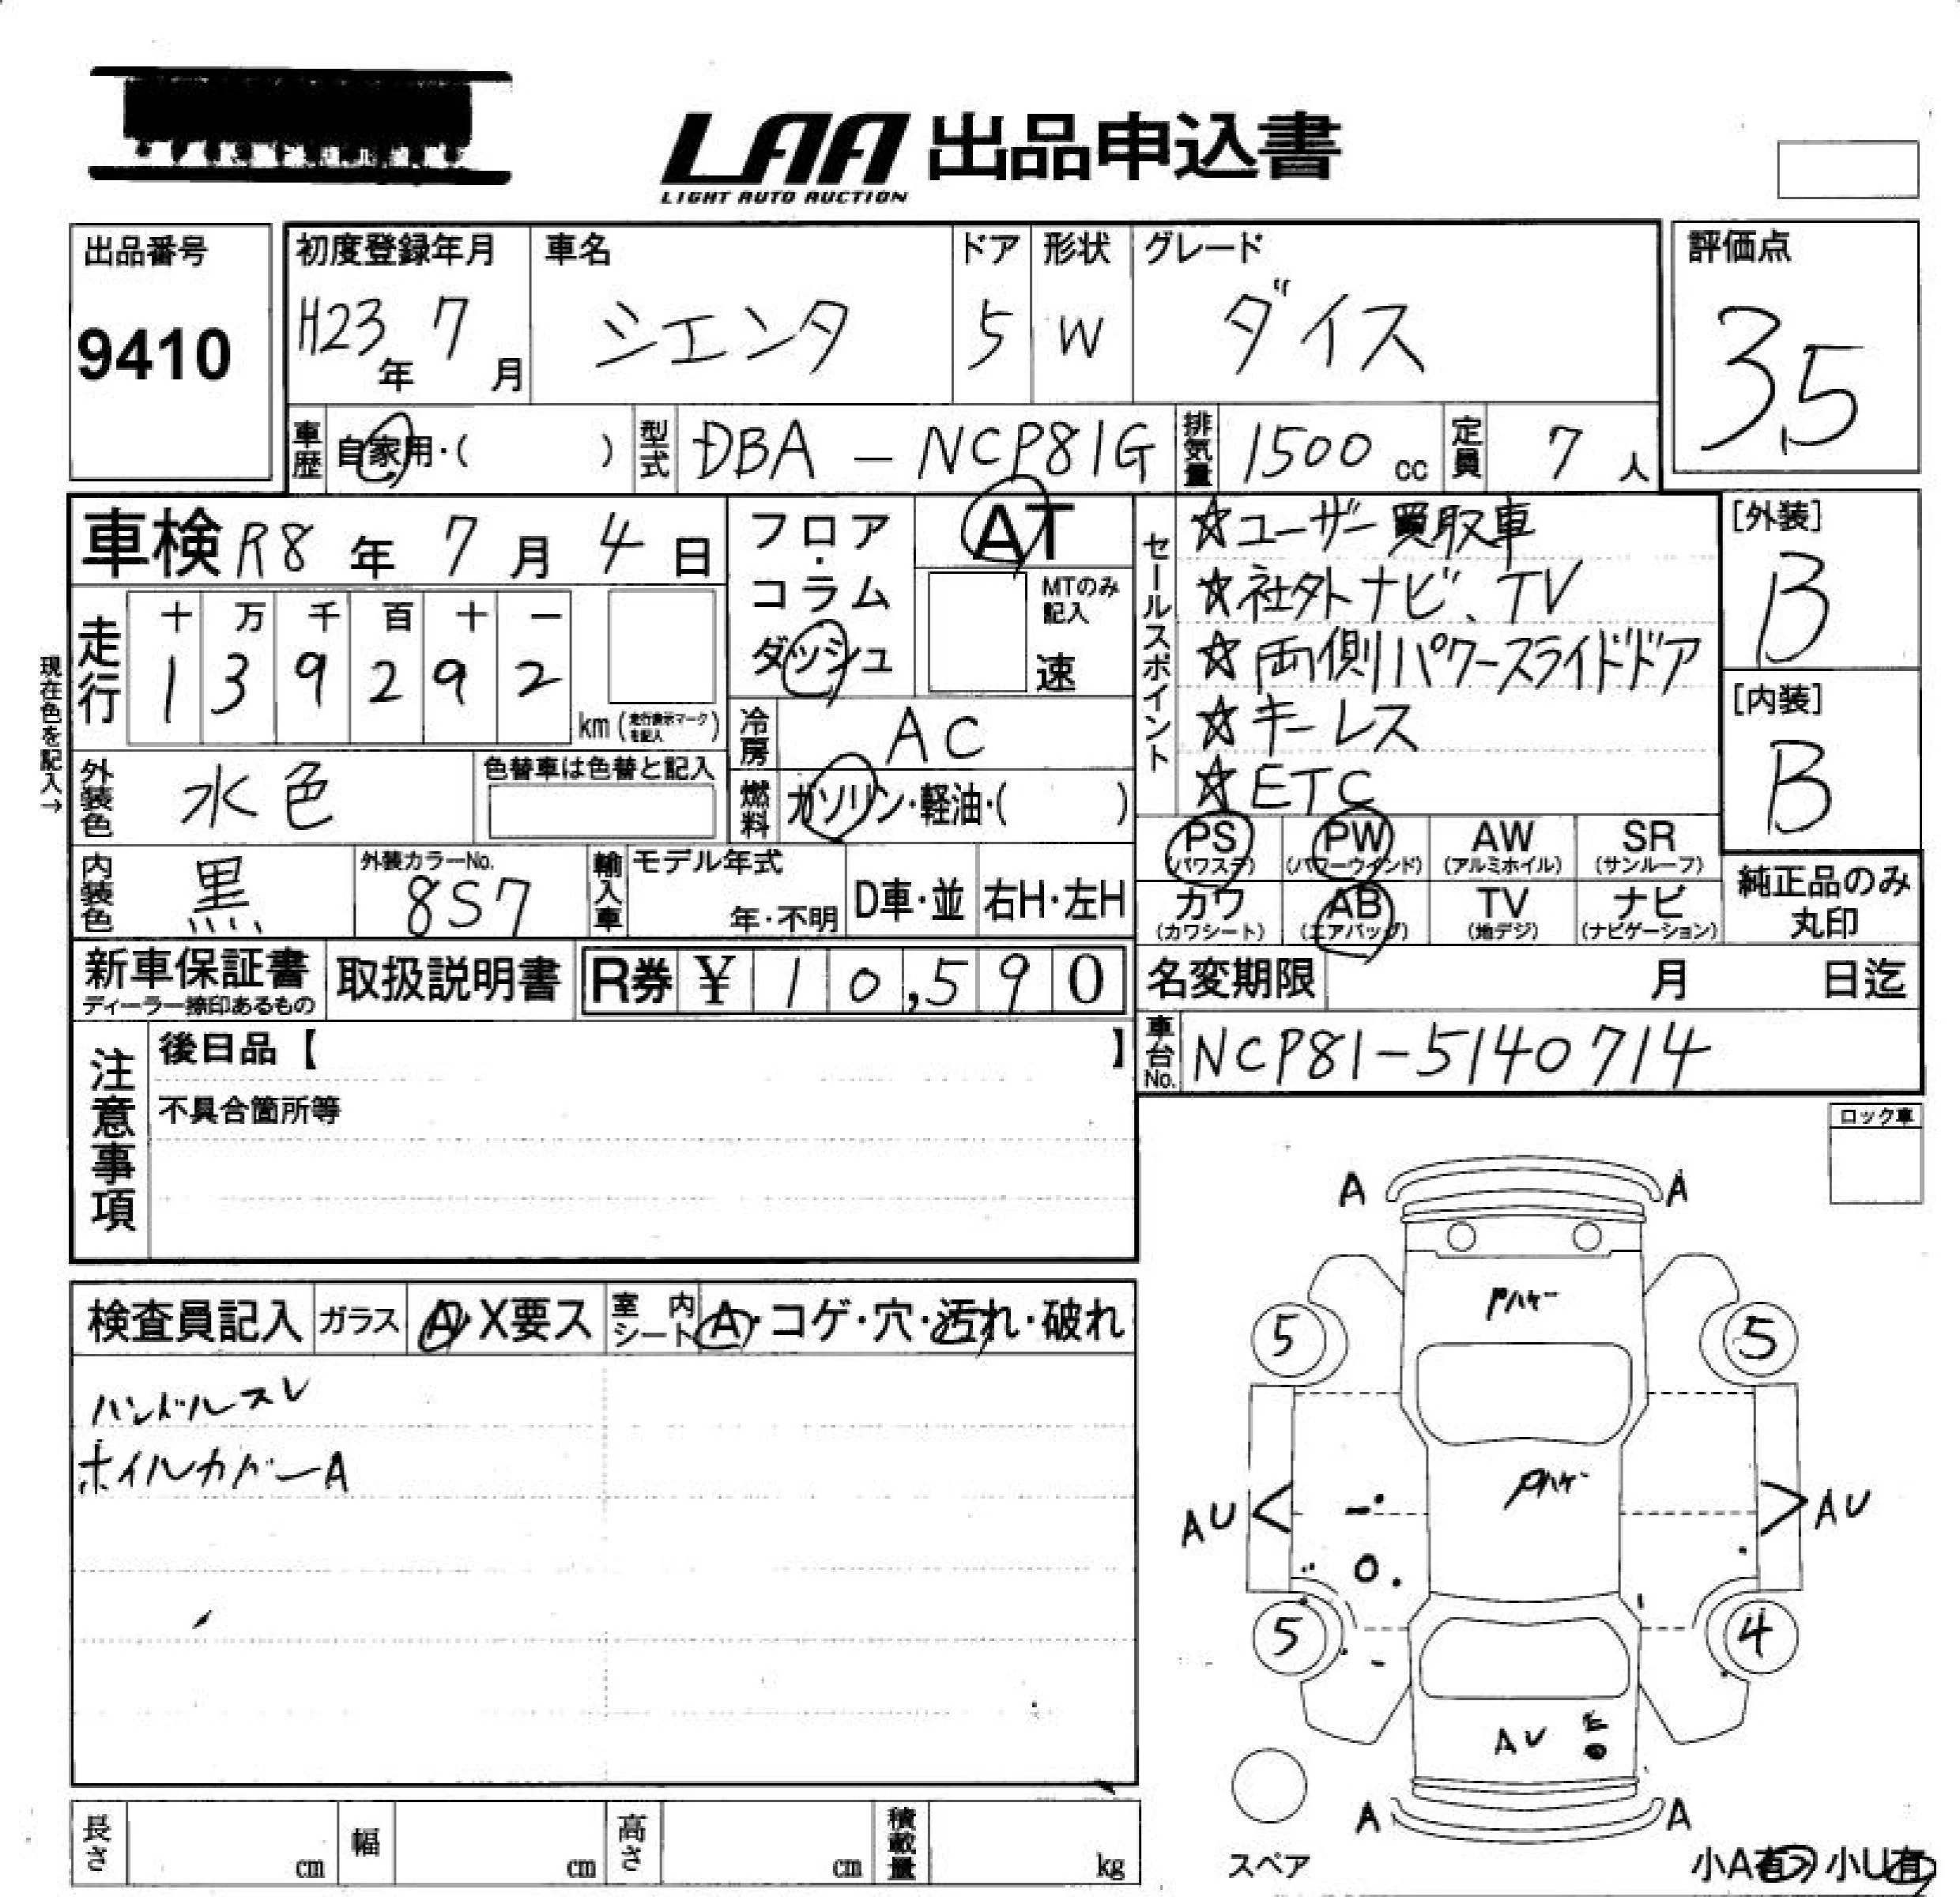 LAA 出品申込書
LIGHT AUTO AUCTION
出品番号
9410
初度登録年月
H23年 7月
車名
シエンタ
ドア
5
形状
W
グレード
ダイス
評価点
3.5
車歴
自家用・( )
型式
DBA - NCP81G
排気量
1500 cc
定員
7 人
車検 R8年 7月 4日
走行
十 万 千 百 十 一
1 3 9 2 9 2
km (走行表示マークを記入)
現在色を記入→
外装色
水色
色替車は色替と記入
内装色
黒
外装カラーNo.
8S7
輸入車
モデル年式
年・不明
D車・並
右H・左H
フロア・コラム
ダッシュ
AT
MTのみ記入
速
冷房
AC
燃料
ガソリン・軽油・( )
セールスポイント
☆ユーザー買取車
☆社外ナビ、TV
☆両側パワースライドドア
☆キーレス
☆ETC
[外装]
B
[内装]
B
PS (パワステ)
PW (パワーウインド)
AW (アルミホイル)
SR (サンルーフ)
カワ (カワシート)
AB (エアバッグ)
TV (地デジ)
ナビ (ナビゲーション)
純正品のみ丸印
新車保証書
ディーラー捺印あるもの
取扱説明書
R券 ¥ 10,590
名変期限 月 日迄
車台No.
NCP81-5140714
注意事項
後日品【 】
不具合箇所等
ロック車
検査員記入
ガラス
A・X要ス
室内シート
A・コゲ・穴・汚れ・破れ
ハンドルスレ
ホイルカバーA
A A
Pハゲ
5 5
Pハゲ
AU AU
5 4
AU
A A
スペア
小A有 小U有
長さ cm
幅 cm
高さ cm
積載量 kg